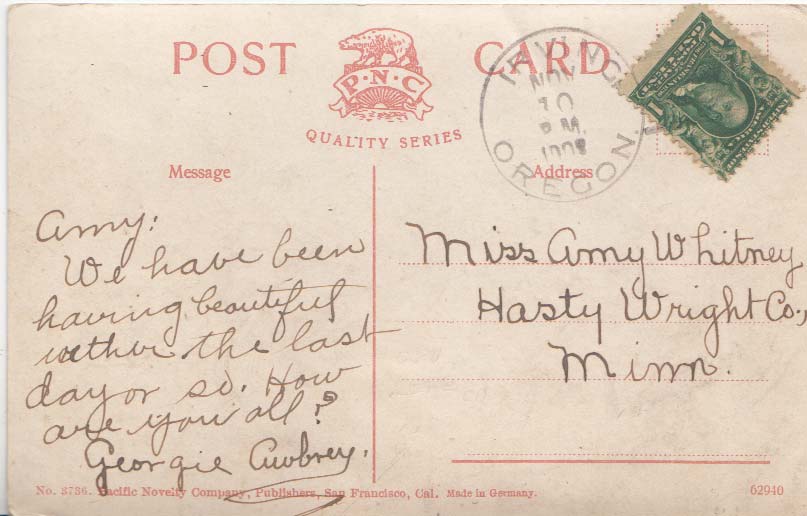 POST CARD
P·N·C
QUALITY SERIES
IRVING
NOV
10
P.M.
OREGON.
1
1
Message
Amy:
We have been
having beautiful
wether the last
day or so. How
are you all?
Georgie Awbrey.
Address
Miss Amy Whitney
Hasty Wright Co.,
Minn.
No. 3736. Pacific Novelty Company, Publishers, San Francisco, Cal. Made in Germany.
62940